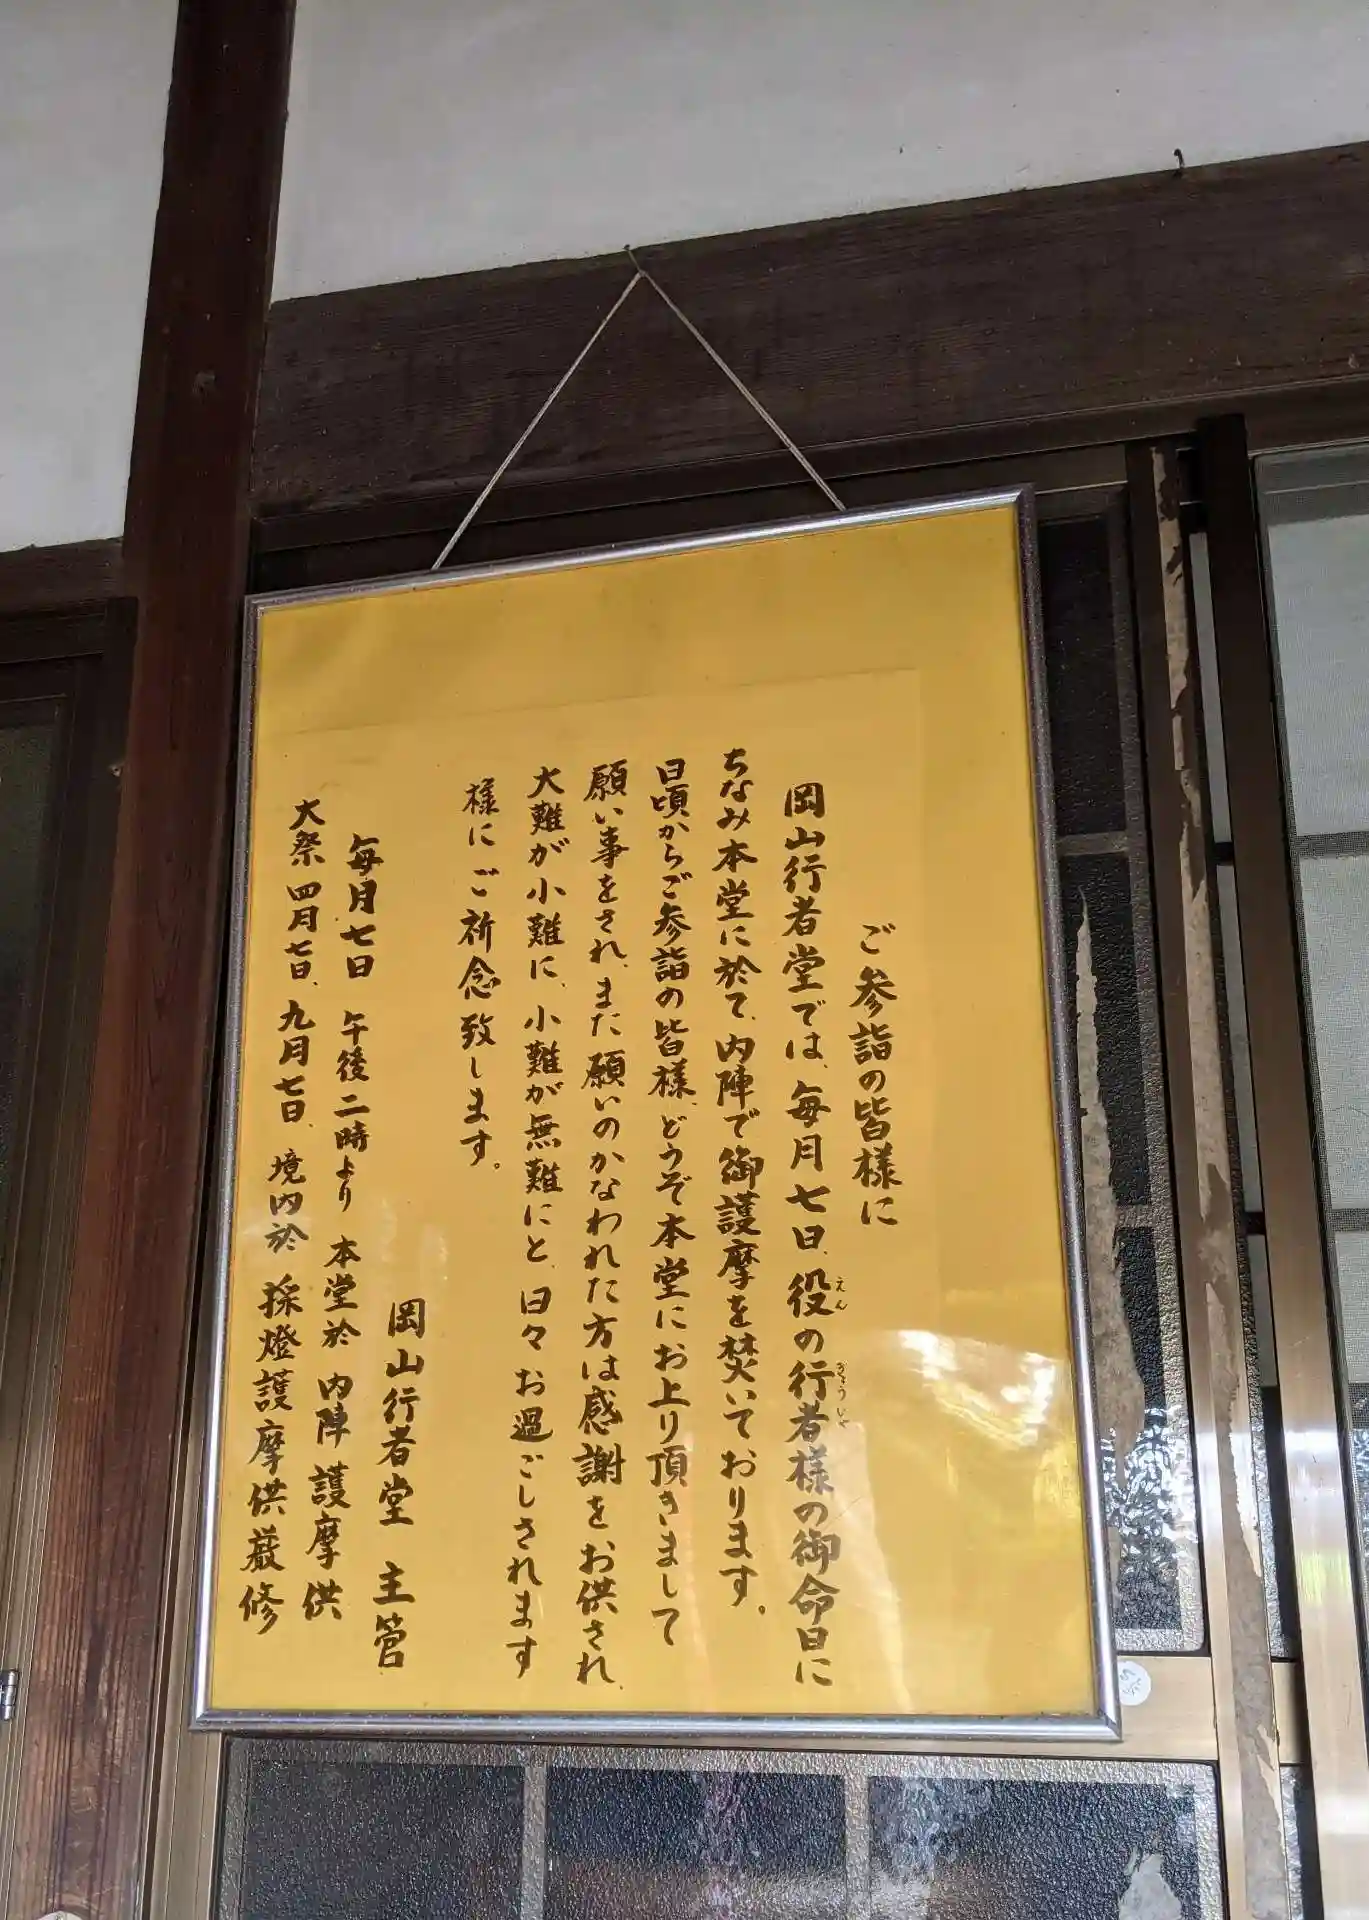 ご参詣の皆様に
岡山行者堂では、毎月七日、役の行者様の御命日に
えん
ぎょうじゃ
ちなみ本堂に於て、内陣で御護摩を焚いております。
日頃からご参詣の皆様、どうぞ本堂にお上り頂きまして
願い事をされ、また願いのかなわれた方は感謝をお供され、
大難が小難に、小難が無難にと、日々お過ごしされます
様にご祈念致します。
岡山行者堂 主管
毎月七日 午後二時より 本堂於 内陣 護摩供
大祭 四月七日、九月七日、境内於 採燈護摩供厳修